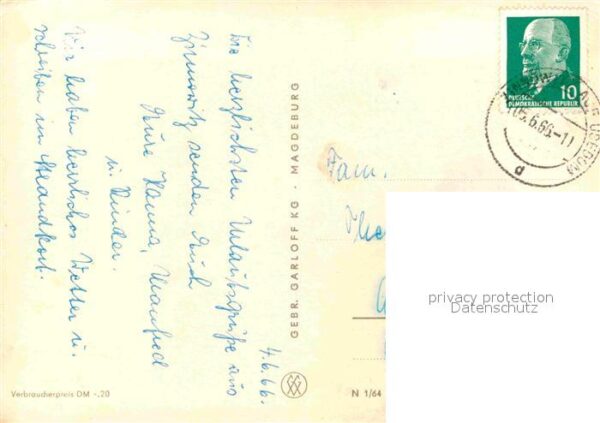 4.6.66.
Die herzlichsten Urlaubsgrüße aus
Zinnowitz senden Euch
Eure Hanna, Manfred
u. Kinder.
Wir haben herrliches Wetter u.
schreiben im Strandkorb.
GEBR. GARLOFF KG · MAGDEBURG
Verbraucherpreis DM -,20
N 1/64
10
DEUTSCHE
DEMOKRATISCHE REPUBLIK
AUF USEDOM
6.66.-11
d
Fam.
privacy protection
Datenschutz